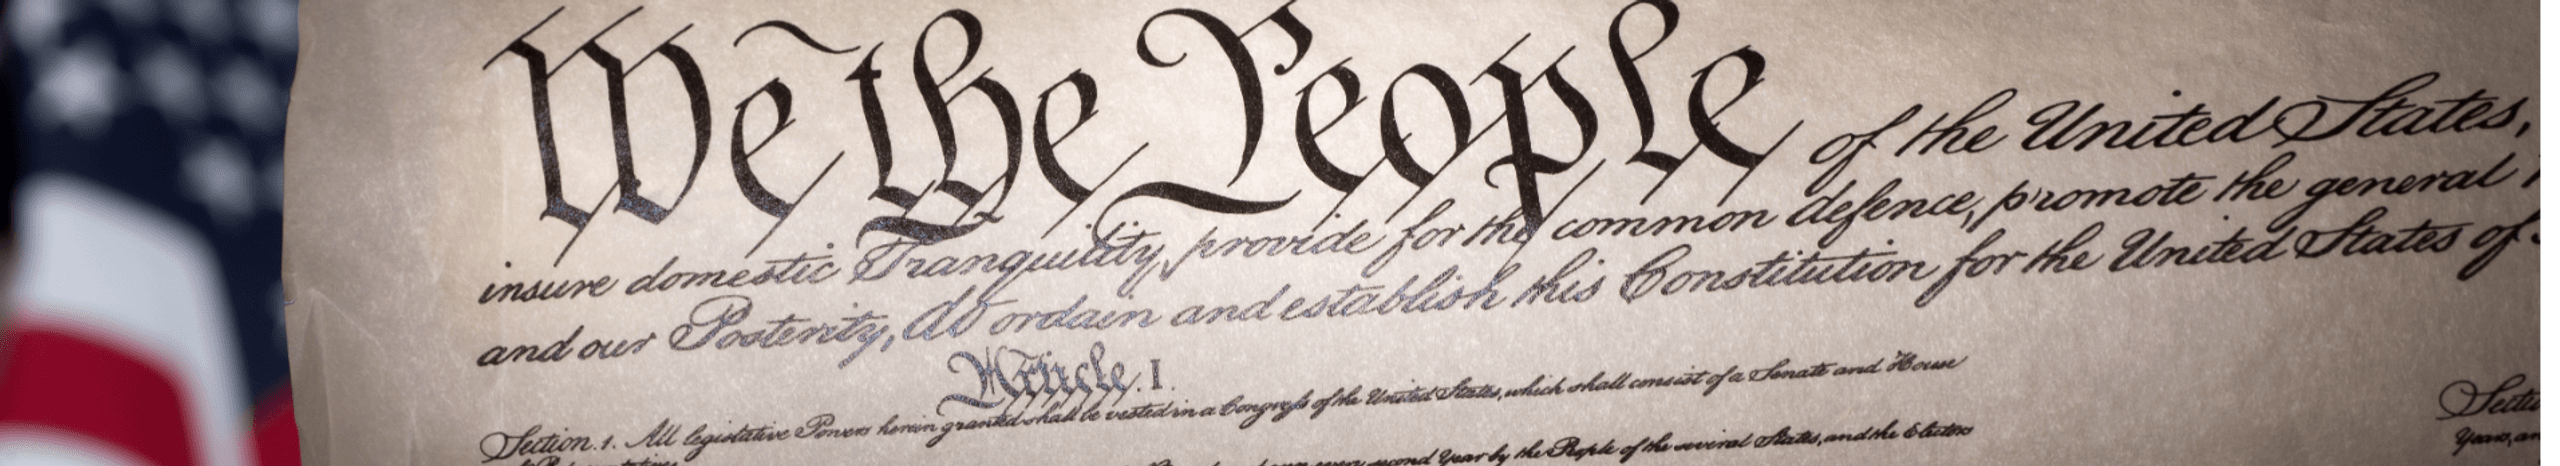 We the People of the United States,
insure domestic Tranquility, provide for the common defence, promote the general
and our Posterity, do ordain and establish this Constitution for the United States of
Article. I.
Section. 1. All legislative Powers herein granted shall be vested in a Congress of the United States, which shall consist of a Senate and House
second Year by the People of the several States, and the Electors
Years, an